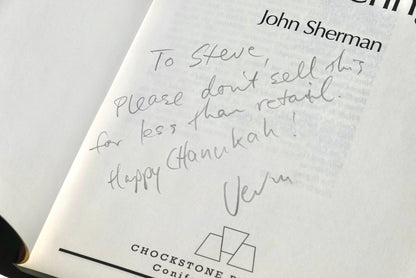 John Sherman
To Steve,
Please don't sell this
for less than retail.
Happy CHanukah!
CHOCKSTONE
Conif